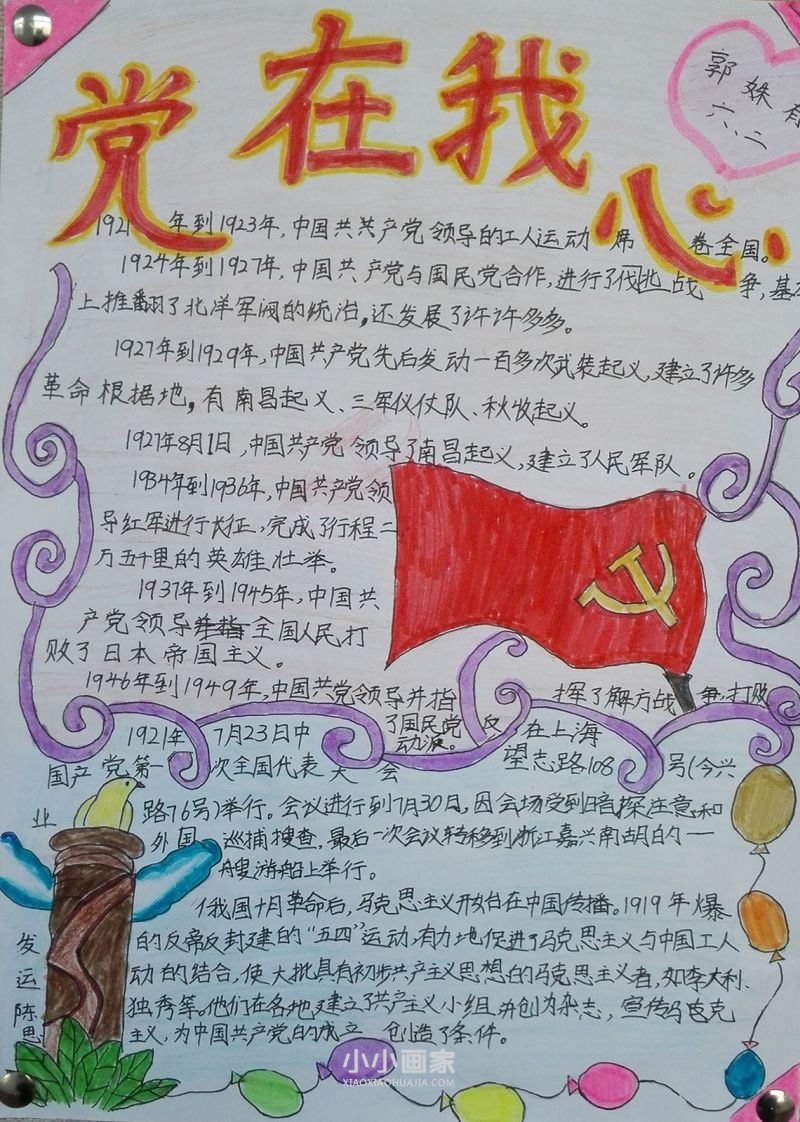 党在我心
郭姝
六、二
1921年到1923年，中国共共产党领导的工人运动席卷全国。
1924年到1927年，中国共产党与国民党合作，进行了伐北战争，基本
上推翻了北洋军阀的统治。还发展了许许多多。
1927年到1929年，中国共产党先后发动一百多次武装起义，建立了许多
革命根据地，有南昌起义、三军仪仗队、秋收起义。
1927年8月1日，中国共产党领导了南昌起义，建立了人民军队。
1934年到1936年，中国共产党领
导红军进行长征，完成了行程二
万五千里的英雄壮举。
1937年到1945年，中国共
产党领导并指全国人民打
败了日本帝国主义。
1946年到1949年，中国共党领导并指挥了解方战争，打败
了国民党反
动派。
1921年7月23日中在上海
国产党第一次全国代表大会望志路108号(今兴
业路76号)举行。会议进行到7月30日，因会场受到暗探注意和
外国巡捕搜查，最后一次会议转移到浙江嘉兴南胡的一
艘游船上举行。
俄国十月革命后，马克思主义开始在中国传播。1919年爆
发的反帝反封建的“五四”运动，有力地促进了马克思主义与中国工人
运动的结合，使大批具有初步共产主义思想的马克思主义者，如李大利、
陈独秀等。他们在各地建立了共产主义小组并创办杂志，宣传马克
思主义，为中国共产党的成立创造了条件。
小小画家
XIAOXIAOHUAJIA.COM